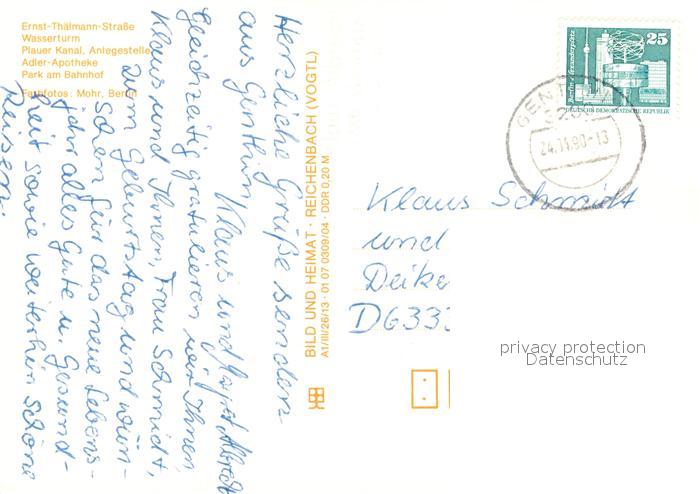 Ernst-Thälmann-Straße
Wasserturm
Plauer Kanal, Anlegestelle
Adler-Apotheke
Park am Bahnhof
Farbfotos: Mohr, Berlin
Herzliche Grüße senden
aus Genthin
Klaus und
Gleichzeitig gratulieren wir Ihnen,
Klaus und Ihnen, Frau Schmidt,
zum Geburtstag und wün-
schen für das neue Lebens-
jahr alles Gute u. Gesund-
heit sowie weiterhin schöne
Reisen.
BILD UND HEIMAT · REICHENBACH (VOGTL)
A1/III/26/13 · 01 07 0309/04 · DDR 0,20 M
25
Berlin, Alexanderplatz
DEUTSCHE DEMOKRATISCHE REPUBLIK
GENTHIN
Klaus Schmidt
und
Deike
D6333
privacy protection
Datenschutz